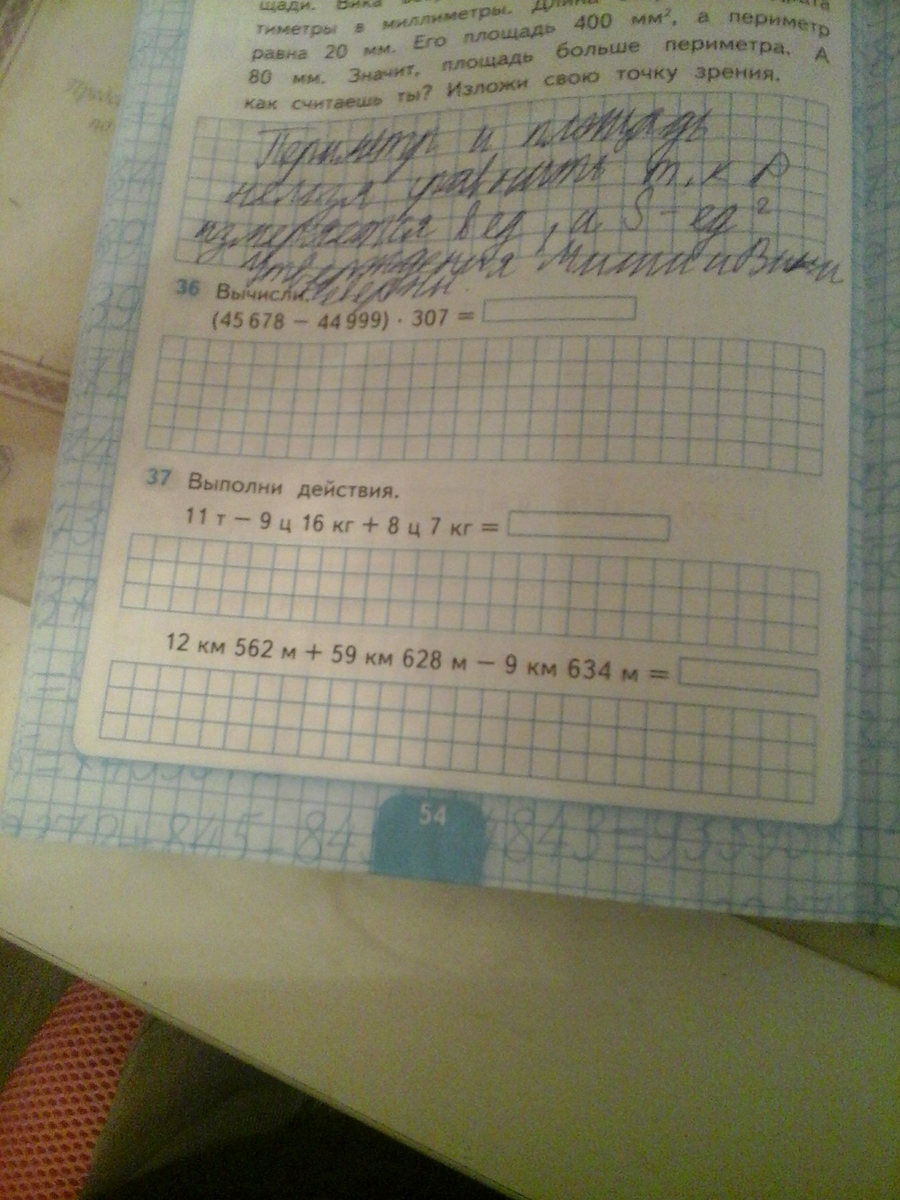 щади. Вика
тиметры в миллиметры.
равна 20 мм. Его площадь 400 мм², а периметр
80 мм. Значит, площадь больше периметра. А
как считаешь ты? Изложи свою точку зрения.
Периметр и площадь
нельзя уравнять т.к P
измеряется в ед, а S - ед²
Утверждения Миши и Вики
неверны.
36 Вычисли.
(45 678 − 44 999) · 307 =
37 Выполни действия.
11 т − 9 ц 16 кг + 8 ц 7 кг =
12 км 562 м + 59 км 628 м − 9 км 634 м =
54